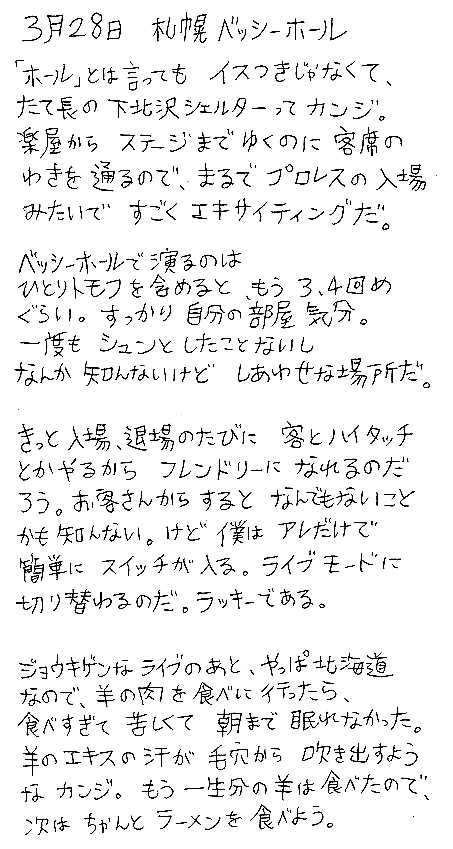 3月28日 札幌 ベッシーホール
「ホール」とは言っても イスつきじゃなくて、
たて長の 下北沢シェルターって カンジ。
楽屋から ステージまで ゆくのに 客席の
わきを 通るので、まるで プロレスの 入場
みたいで すごく エキサイティングだ。
ベッシーホールで 演るのは
ひとりトモフを含めると、もう 3、4回め
ぐらい。すっかり 自分の 部屋 気分。
一度も シュンと したことないし
なんか 知んないけど しあわせな場所だ。
きっと 入場、退場のたびに 客とハイタッチ
とかやるから フレンドリーに なれるのだ
ろう。お客さんから すると なんでもないこと
かも 知んない。けど 僕は アレだけで
簡単に スイッチが 入る。ライブ モードに
切り替わるのだ。ラッキーである。
ジョウキゲンな ライブの あと、やっぱ 北海道
なので、羊の肉 を 食べに 行ったら、
食べすぎて 苦しくて 朝まで 眠れなかった。
羊の エキスの 汗が 毛穴から 吹き出すよう
な カンジ。もう 一生分の 羊は 食べたので、
次は ちゃんと ラーメンを 食べよう。